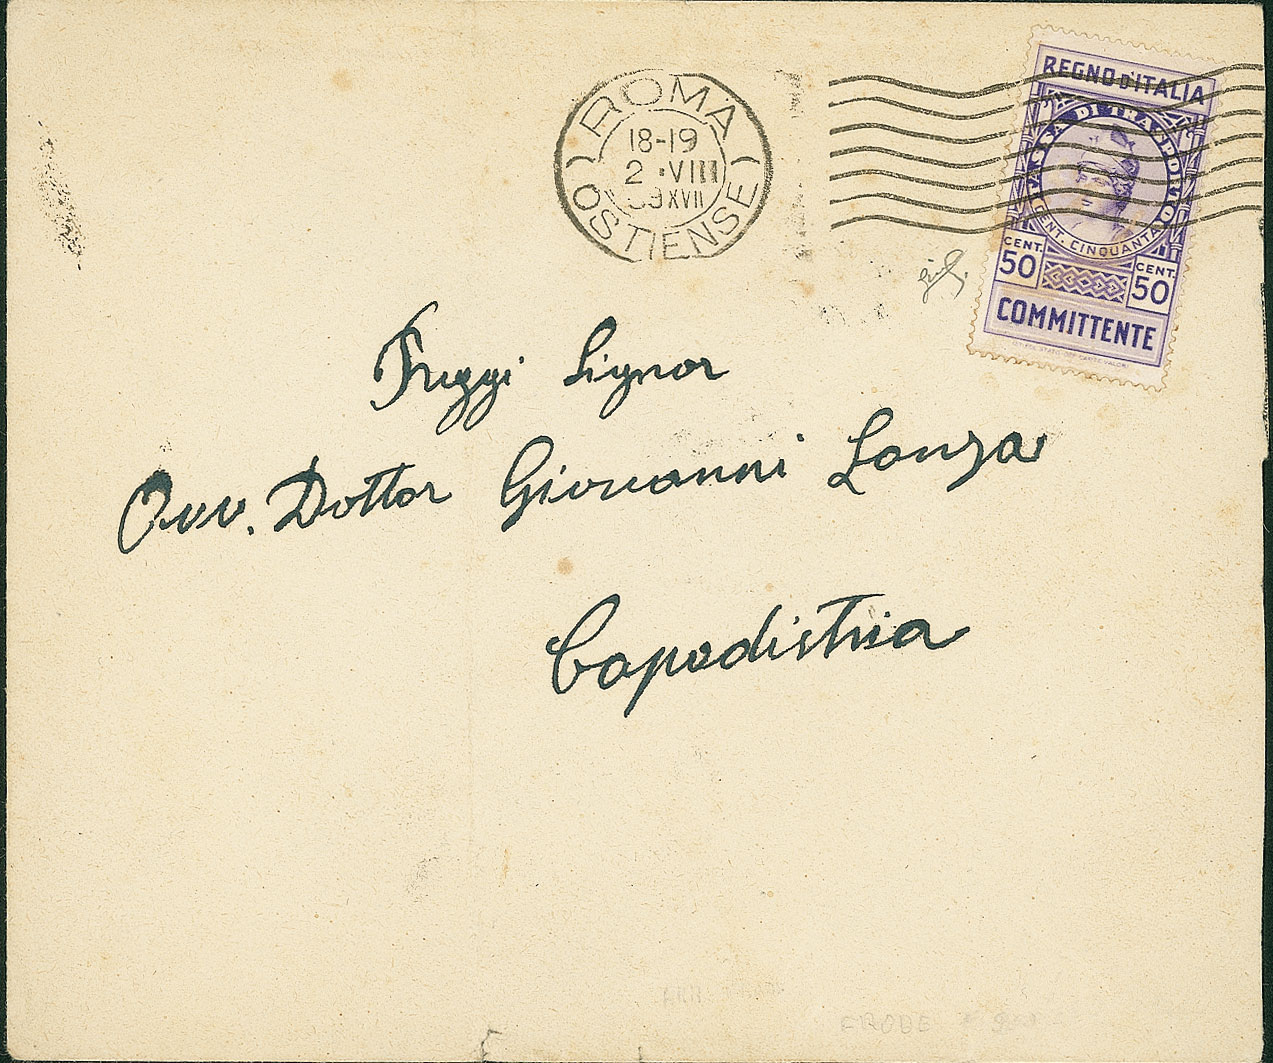 ROMA
18-19
2 · VIII
39 XVII
OSTIENSE
REGNO D'ITALIA
TASSA DI TRASPORTO
CENT. CINQUANTA
CENT. 50
CENT. 50
COMMITTENTE
Preggi Signor
Avv. Dottor Giovanni Lonza
Capodistria
ERODE